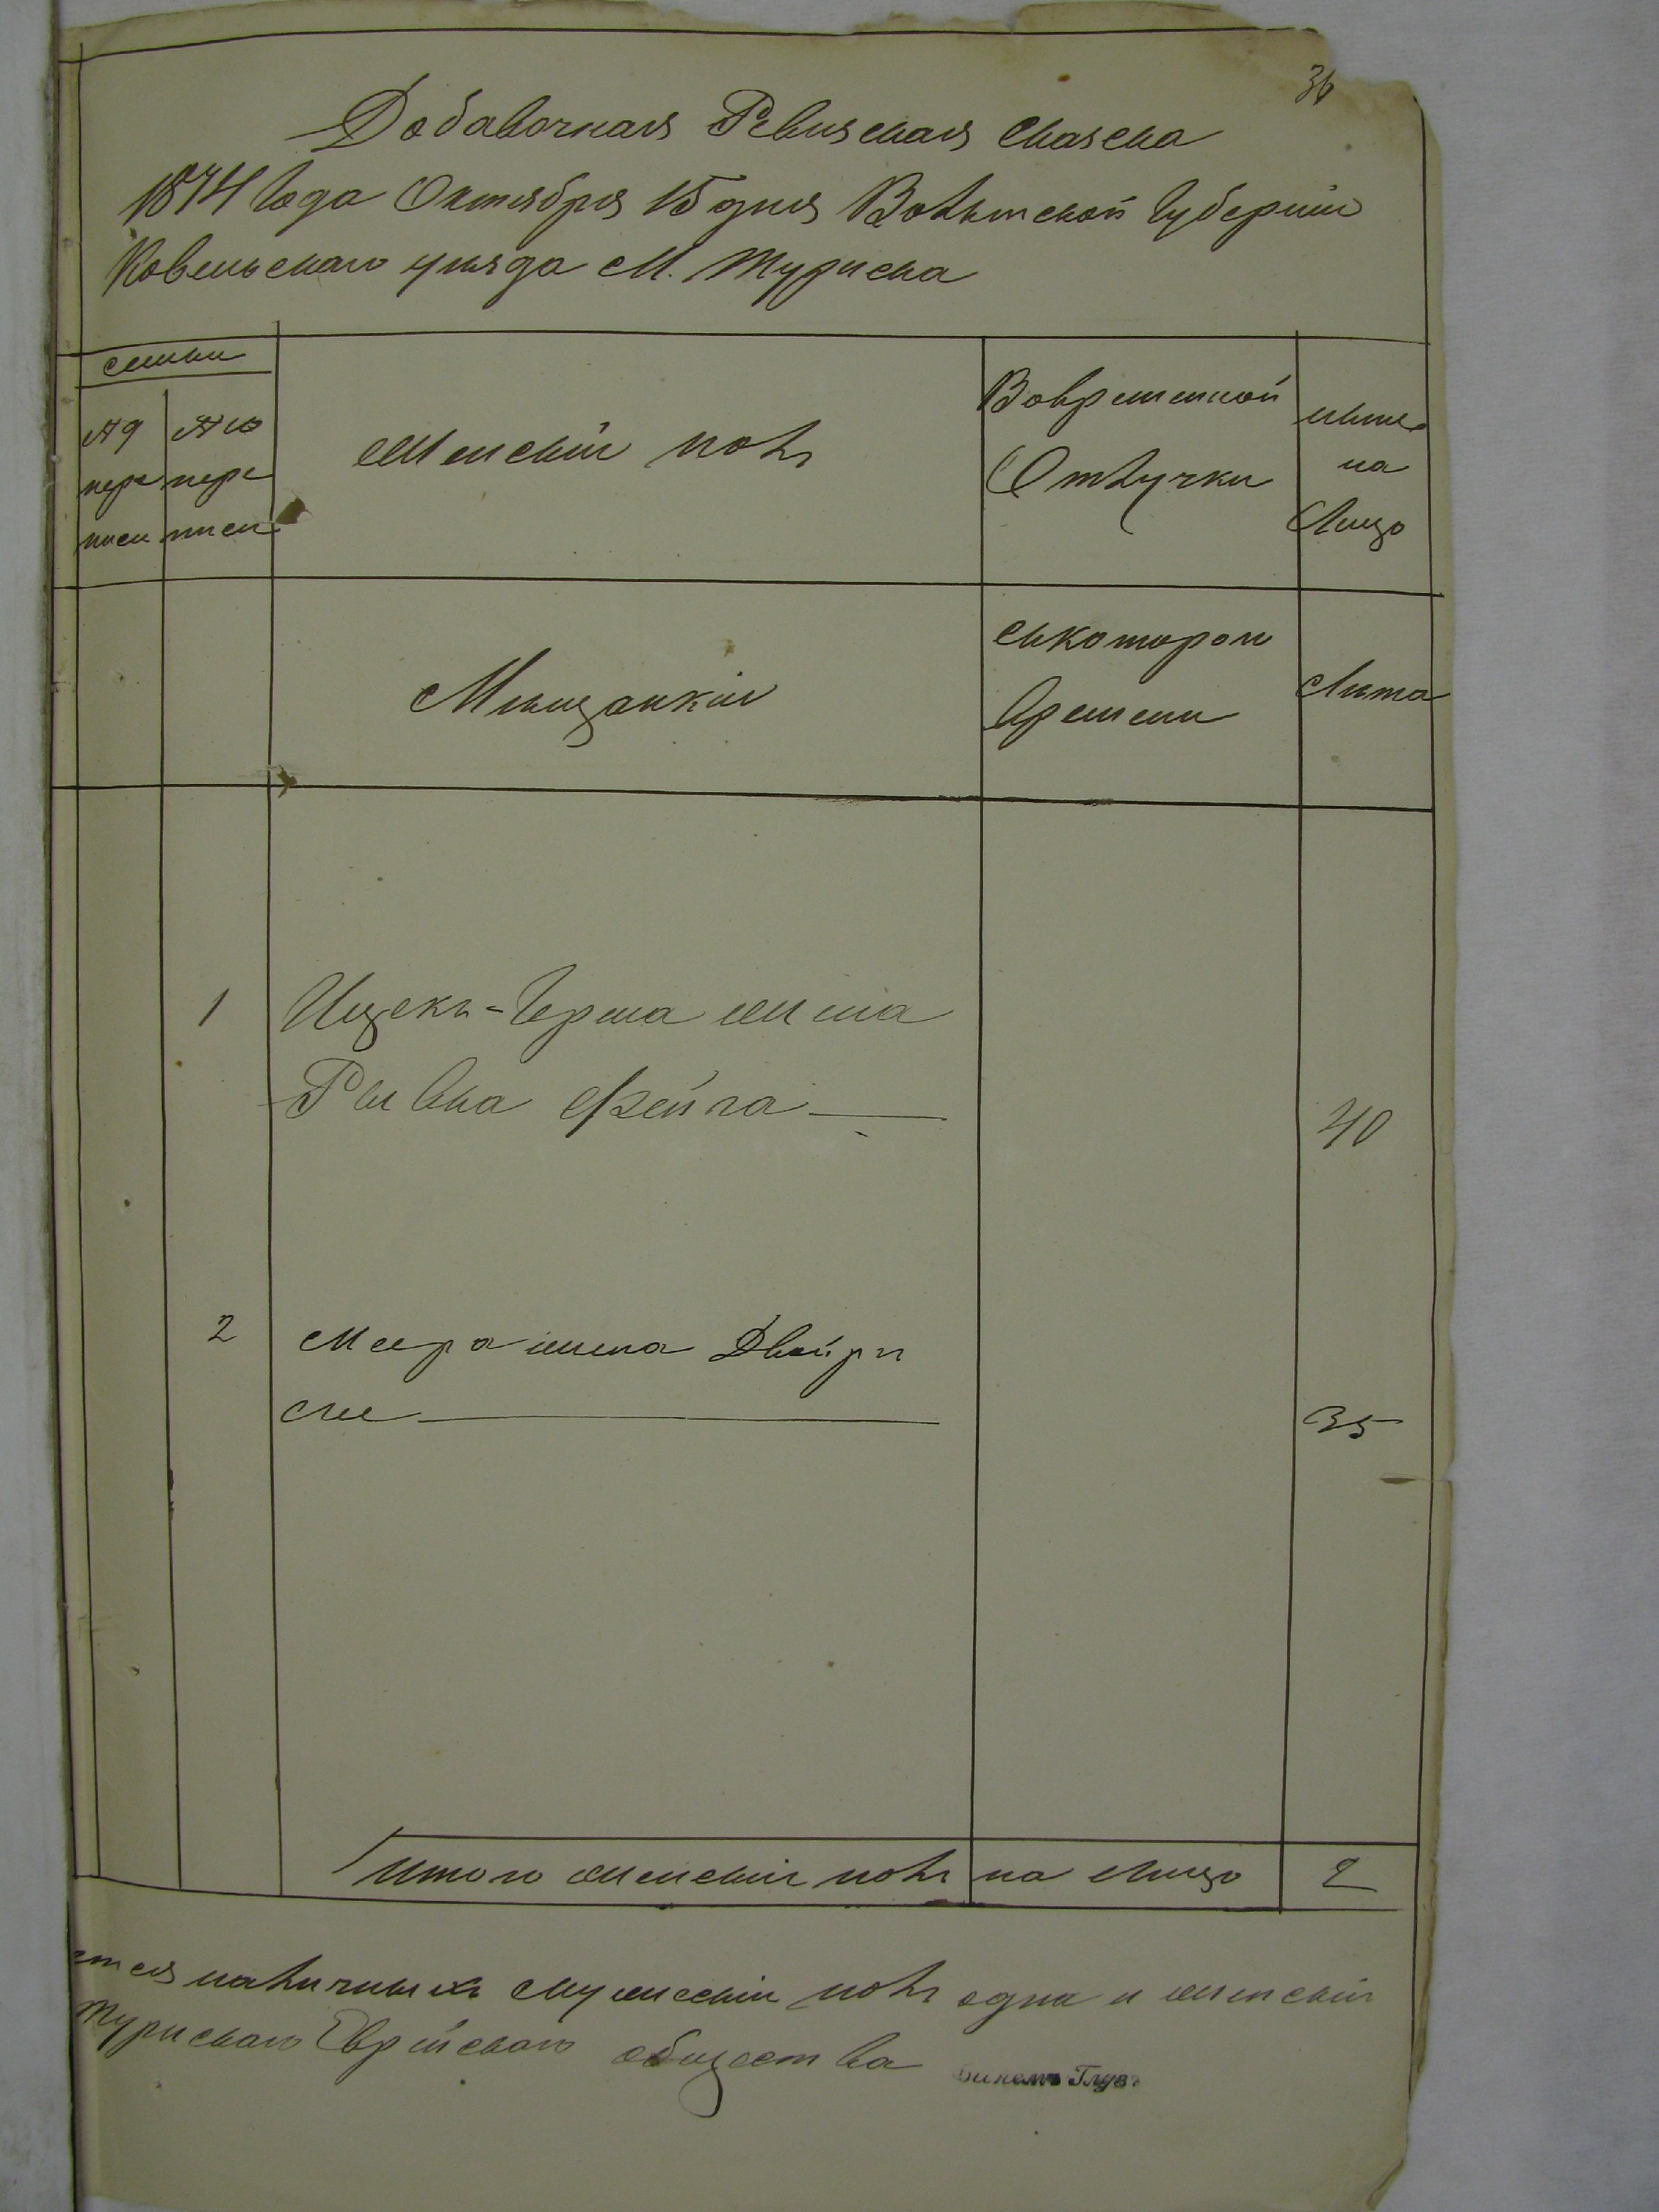 36
Добавочная Ревизская сказска
1874 Года Октября 15 дня Волынской Губернии
Ковельскаго уѣзда М. Турписка
семьи
№ 9 переписи
№ 10 переписи
Женскій полъ
Во временной Отлучки
ныне на Лицо
Мѣщанкіи
съ котораго времени
Лѣта
1
Ицекъ-Герша жена
Рывка Фейга
40
2
Меера жена Двейри
сле
35
Итого женскій полъ на Лицо 2
наличныхъ мужескій полъ одна и женскій
Турискаго Еврейскаго общества